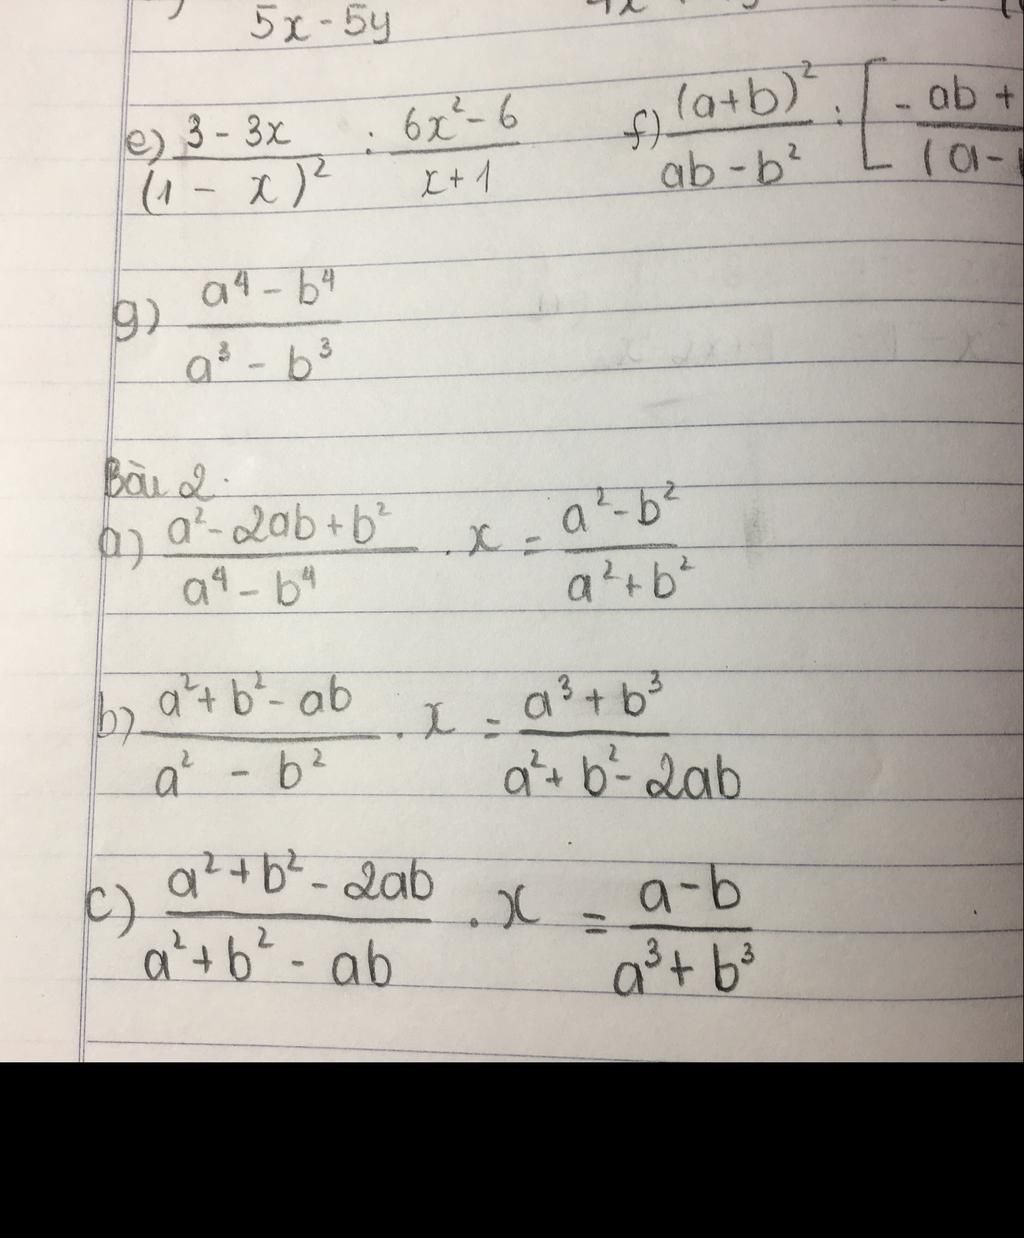 5x - 5y
e) (3 - 3x)/(1 - x)² : (6x² - 6)/(x + 1) f) (a+b)²/(ab - b²) : [ - ab +/(a -
g) (a⁴ - b⁴)/(a³ - b³)
Bài 2.
a) (a² - 2ab + b²)/(a⁴ - b⁴) . x = (a² - b²)/(a² + b²)
b) (a² + b² - ab)/(a² - b²) . x = (a³ + b³)/(a² + b² - 2ab)
c) (a² + b² - 2ab)/(a² + b² - ab) . x = (a - b)/(a³ + b³)